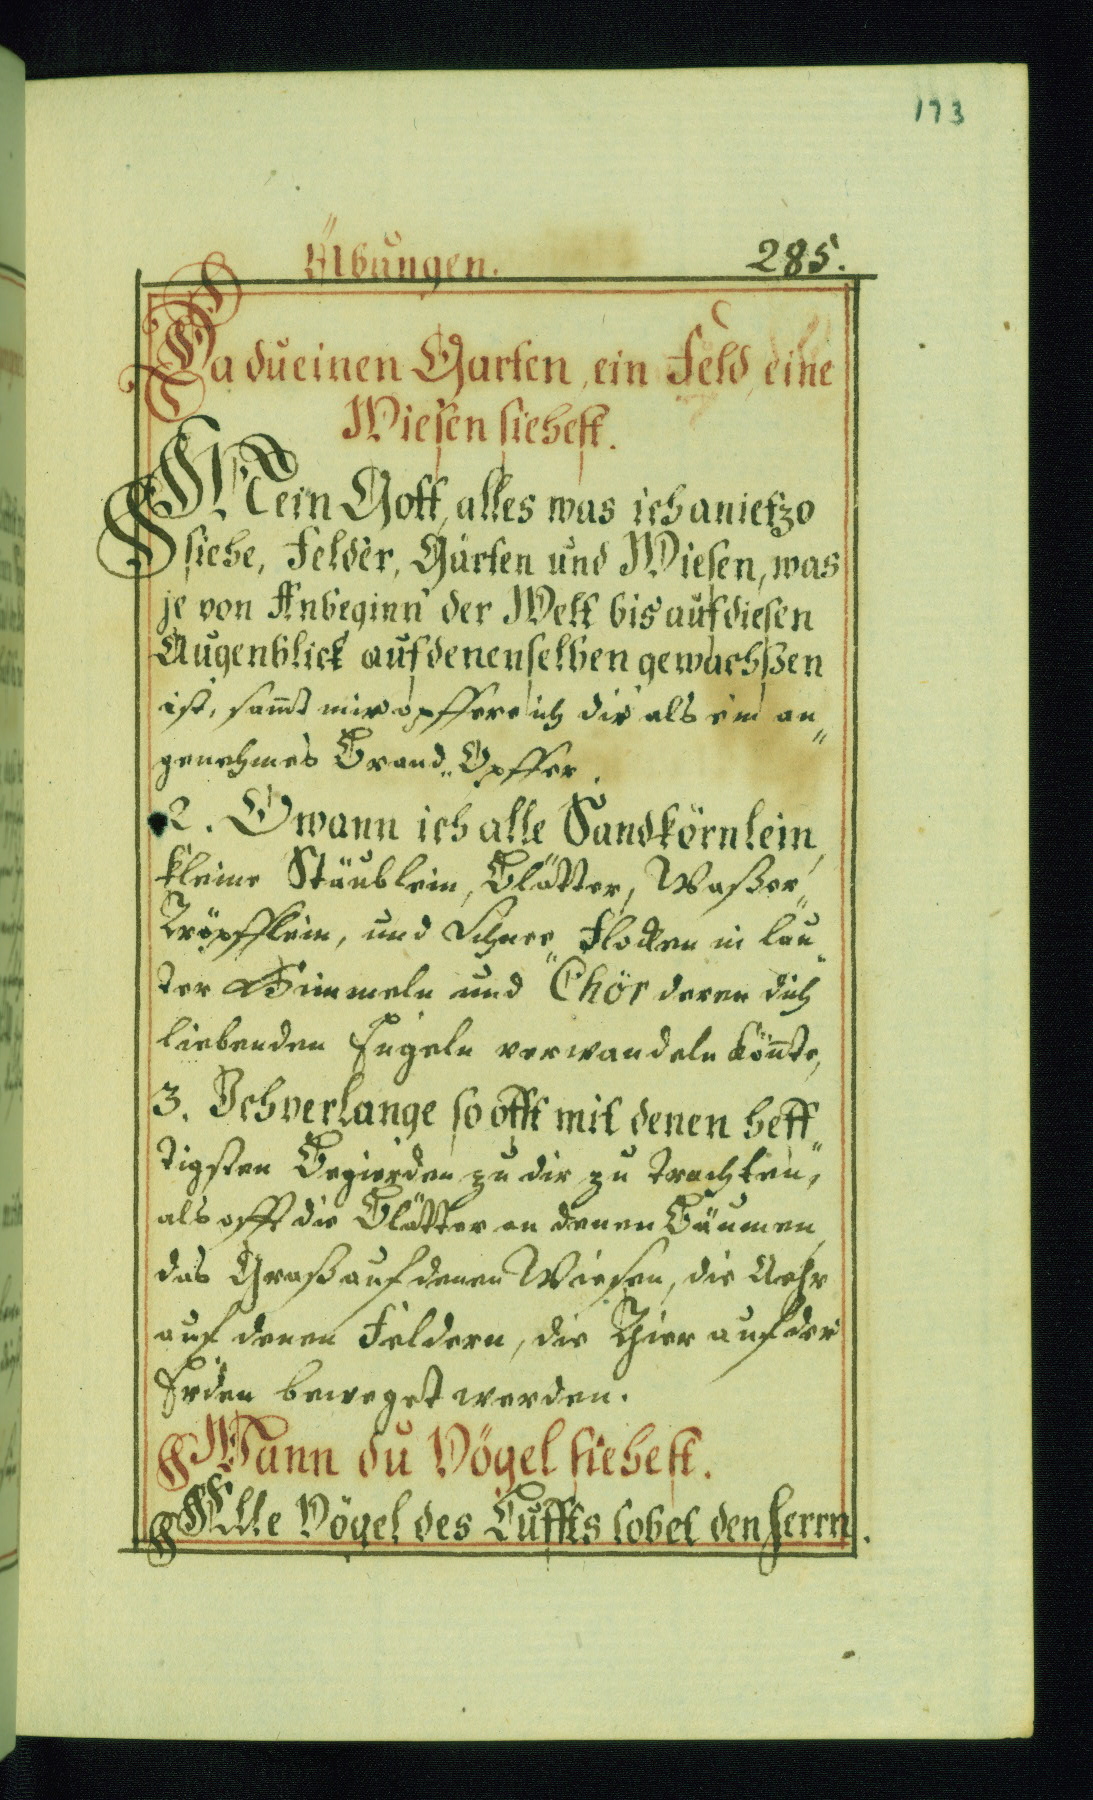 173
Übungen. 285.
Da du einen Garten, ein Feld, eine
Wiesen siehest.
Mein Gott, alles was ich anietzo
siehe, Felder, Gärten und Wiesen, was
je von Anbeginn der Welt bis auf diesen
Augenblick auf denenselben gewachßen
ist, sam̄t mir opffere ich dir als ein an„
genehmes Brand„Opffer.
2. O wann ich alle Sandkörnlein,
kleine Stäublein, Blätter, Waßer„
Tröpfflein, und Schnee„Flocken in lau„
ter Himmeln und Chör deren dich
liebenden Engeln verwandeln kön̄te,
3. Ich verlange so offt mit denen heff„
tigsten Begierden zu dir zu trachten,
als offt die Blätter an denen Bäumen,
das Graß auf denen Wiesen, die Aehr
auf denen Feldern, die Thier auf der
Erden beweget werden.
Wann du Vögel siehest.
Alle Vögel des Luffts lobet den Herrn.